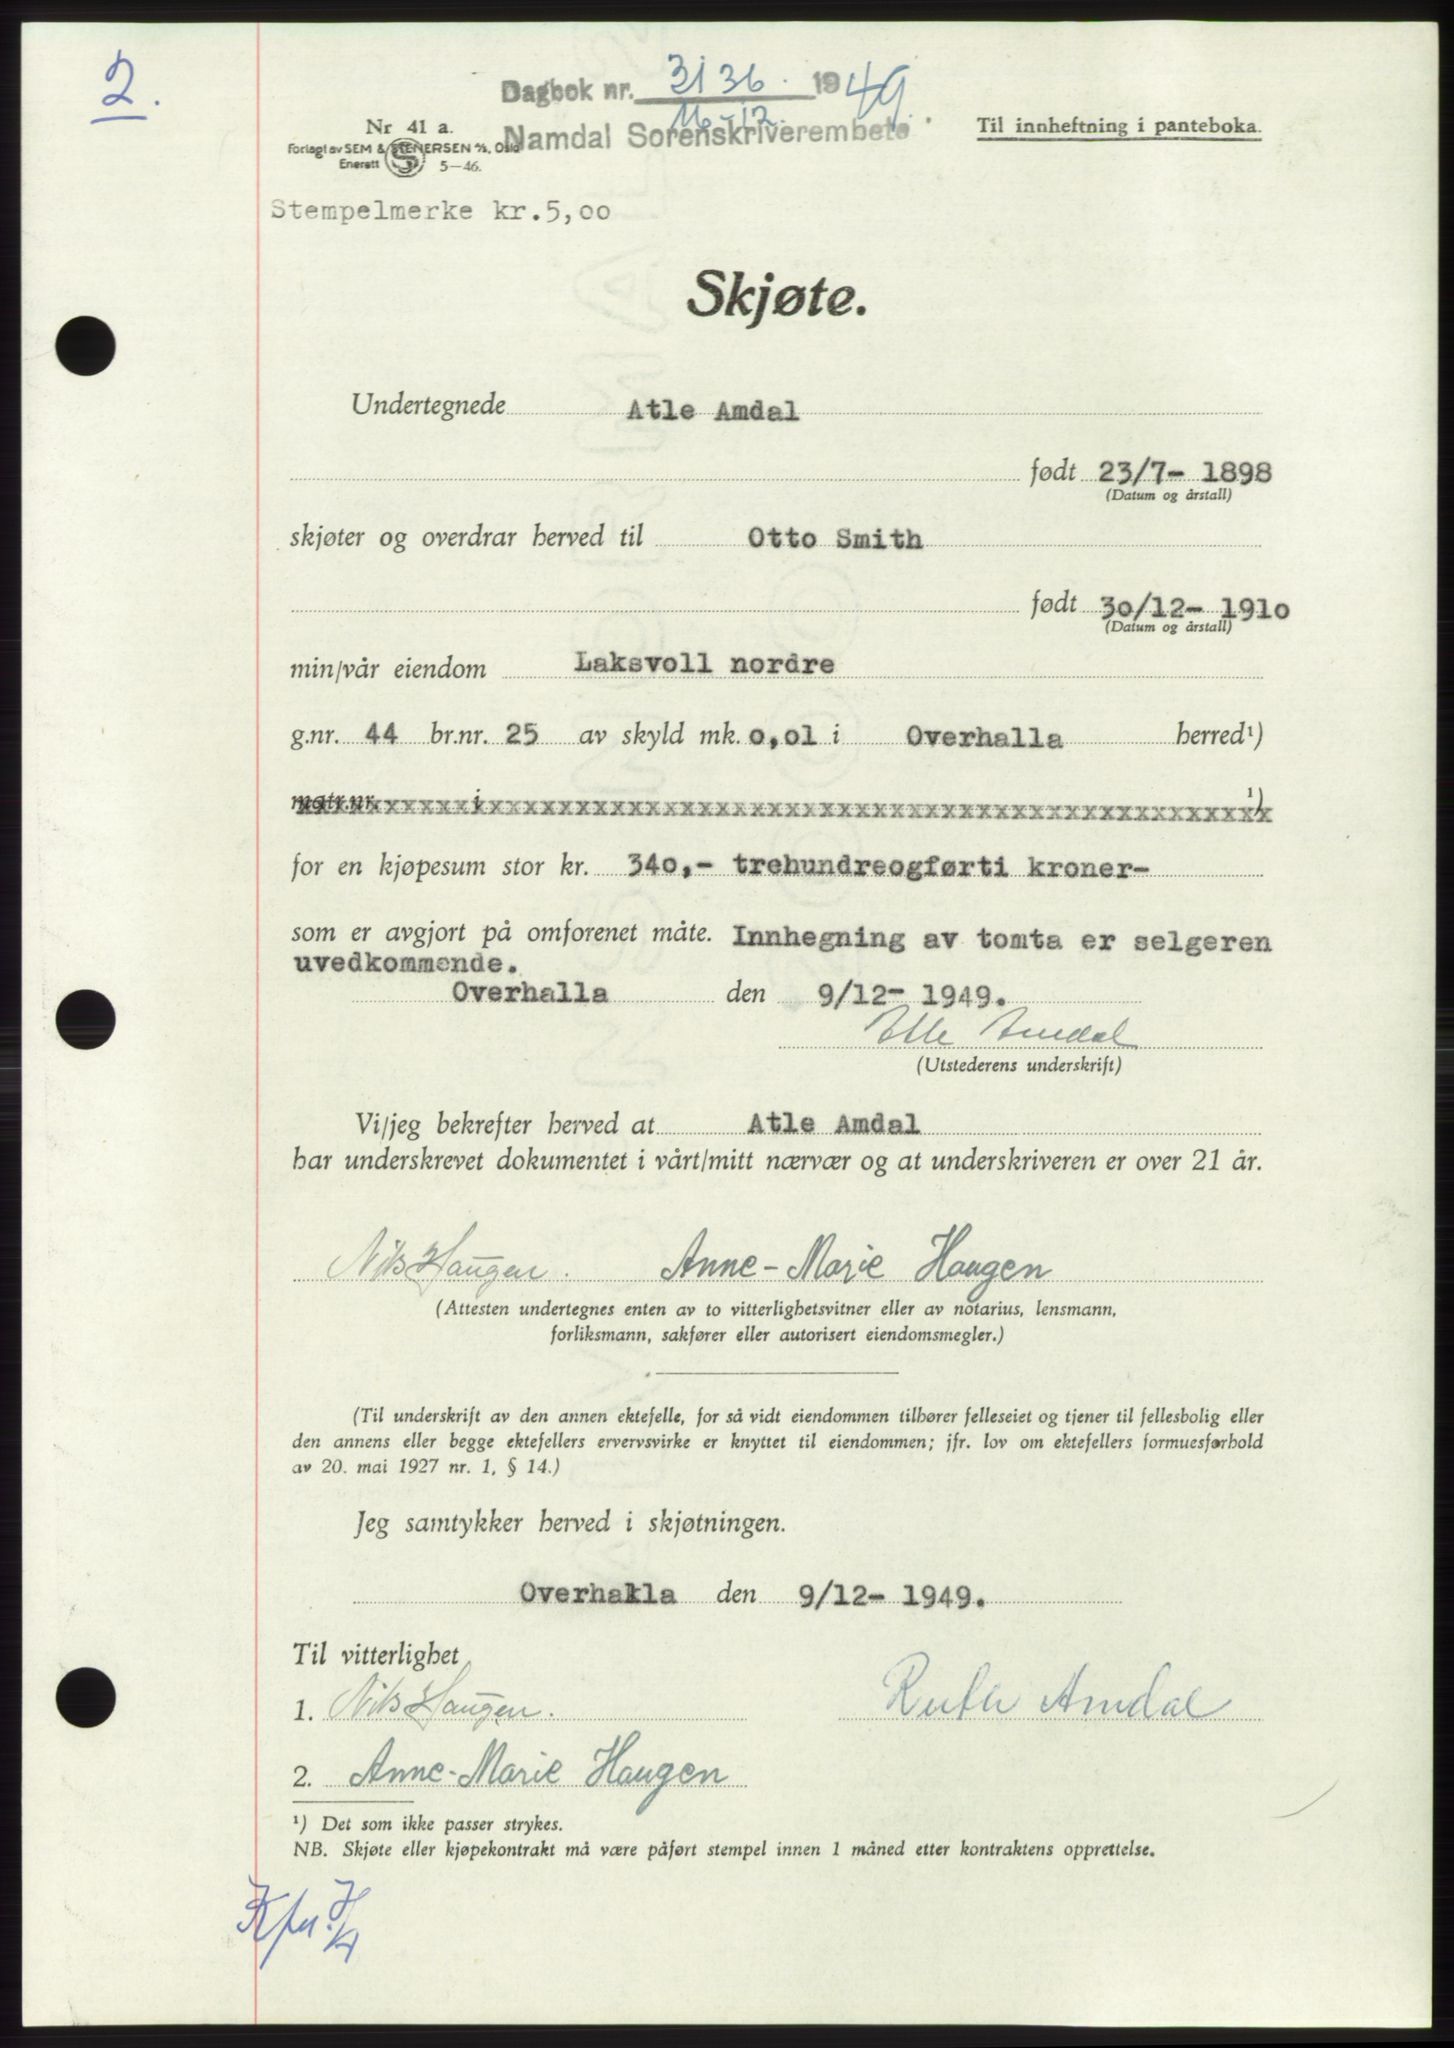 2.
Dagbok nr. 3136. 1949.
16-12.
Namdal Sorenskriverembete
Nr 41 a.
Forlagt av SEM & STENERSEN A/S, Oslo
Enerett 5-46.
Til innheftning i panteboka.
Stempelmerke kr.5,00
Skjøte.
Undertegnede Atle Amdal
født 23/7- 1898
(Datum og årstall)
skjøter og overdrar herved til Otto Smith
født 30/12- 1910
(Datum og årstall)
min/vår eiendom Laksvoll nordre
g.nr. 44 br.nr. 25 av skyld mk. 0,01 i Overhalla herred¹)
matr.nr. i ¹)
for en kjøpesum stor kr. 340,- trehundreogførti kroner-
som er avgjort på omforenet måte. Innhegning av tomta er selgeren
uvedkommende.
Overhalla den 9/12- 1949.
Atle Amdal
(Utstederens underskrift)
Vi/jeg bekrefter herved at Atle Amdal
har underskrevet dokumentet i vårt/mitt nærvær og at underskriveren er over 21 år.
Nils Haugen. Anne-Marie Haugen
(Attesten undertegnes enten av to vitterlighetsvitner eller av notarius, lensmann,
forliksmann, sakfører eller autorisert eiendomsmegler.)
(Til underskrift av den annen ektefelle, for så vidt eiendommen tilhører felleseiet og tjener til fellesbolig eller
den annens eller begge ektefellers ervervsvirke er knyttet til eiendommen; jfr. lov om ektefellers formuesforhold
av 20. mai 1927 nr. 1, § 14.)
Jeg samtykker herved i skjøtningen.
Overhalla den 9/12- 1949.
Til vitterlighet
1. Nils Haugen. Ruth Amdal
2. Anne-Marie Haugen
¹) Det som ikke passer strykes.
NB. Skjøte eller kjøpekontrakt må være påført stempel innen 1 måned etter kontraktens opprettelse.